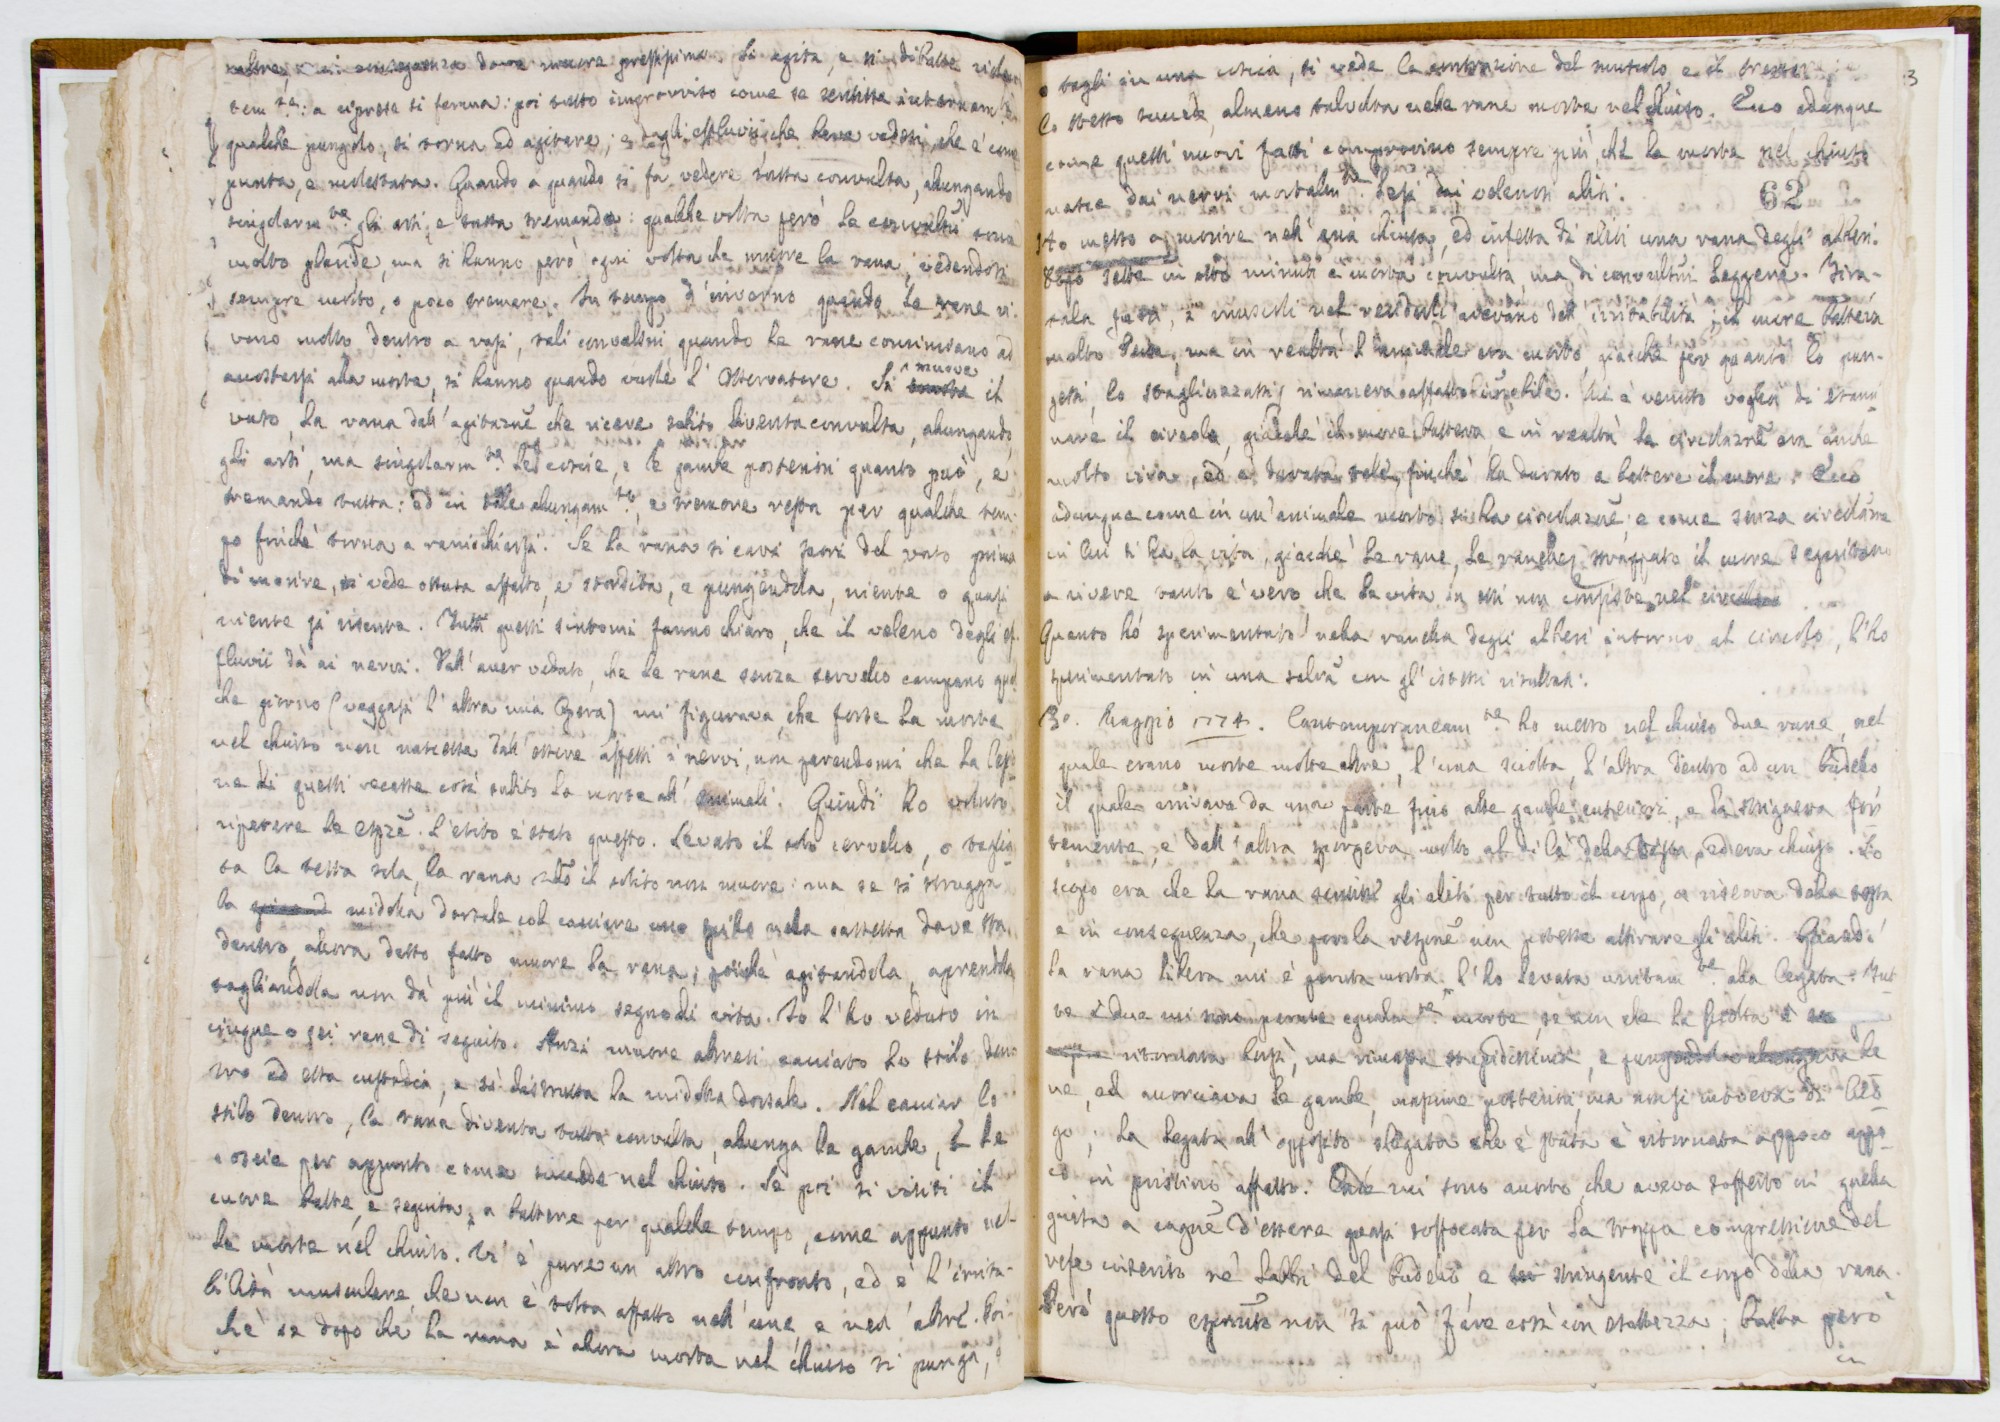 altre, e in conseguenza deve morire prestissimo. Si agita, e si dibatte violen
tem.te: a riprese si ferma: poi tutto improvviso come se sentisse internam.te
qualche pungolo, si torna ad agitare; e dagli effluvii che deve vedersi, che è come
punta, e molestata. Quando a quando si fa vedere tutta convulsa, allungando
singolarm.te gli arti, e tutta tremando: qualche volta però le convulsni sono
molto placide, ma si hanno però ogni volta che muore la rana, vedendosi
sempre molto, o poco tremare. In tempo d'inverno quando le rane vi
vono molto dentro a vasi, tali convulsni quando le rane cominciano ad
accostarsi alla morte, si hanno quando vuole l'osservatore. Si muove il
vaso, la rana dall'agitazne che riceve subito diventa convulsa, allungando
gli arti, ma singolarm.te le coscie, e le gambe posteriori quanto può, e
tremando tutta: ed in tale allungam.to, e tremore resta per qualche tem
po finchè torna a rannicchiarsi. Se la rana si cavi fuori del vaso prima
di morire, si vede ottusa affatto, e stordita, e pungendola, niente o quasi
niente si risente. Tutti questi sintomi fanno chiaro, che il veleno degli ef
fluvii dà ai nervi. Dall'aver veduto, che le rane senza cervello campano qual
che giorno (veggasi l'altra mia Opera) mi figurava, che forse la morte
nel chiuso non nascesse dall'essere affetti i nervi, non parendomi che la lesio
ne di questi recasse così subito la morte all'animali. Quindi ho voluto
ripetere le esprze. L'esito è stato questo. Levato il solo cervello, o taglia
ta la testa sola, la rana secdo il solito non muore: ma se si strugga
la midolla dorsale col cacciare uno stilo nella cassetta dove sta
dentro, allora detto fatto muore la rana, poichè agitandola, aprendola
tagliandola non dà più il minimo segno di vita. Io l'ho veduto in
cinque o sei rane di seguito. Anzi muore altresì cacciato lo stilo den
tro ad essa custodia, e sì distrutta la midolla dorsale. Nel cacciar lo
stilo dentro, la rana diventa tutta convulsa, allunga le gambe, e le
coscie per appunto come succede nel chiuso. Se poi si visiti il
cuore batte, e seguita a battere per qualche tempo, come appunto nel
la morte nel chiuso. Vi è pure un altro confronto, ed è l'irrita
bilità muscolare, che non è tolta affatto nell'une e nell'altre. Poi
chè se dopo che la rana è allora morta nel chiuso si punga,
3
o tagli in una coscia, si vede la contrazione del muscolo e il tremore
lo stesso succede, almeno talvolta nelle rane morte nel chiuso. Ecco adunque
come questi nuovi fatti comprovino sempre più che la morte nel chiuso
nasce dai nervi mortalm.te lesi dai velenosi aliti.
62
Ho messo a morire nell'aria chiusa, ed infetta di aliti una rana degli alberi.
Dopo sette in otto minuti è morta convulsa, ma di convulsni leggere. Tira
tala fuori, i muscoli nel renderli avevano dell'irritabilità; il cuore batteva
molto bene, ma in realtà l'animale era morto, giacchè per quanto lo pun
gessi, lo tagliuzzassi, rimaneva affatto immobile. Mi è venuto voglia di esami
nare il circolo, giacchè il cuore batteva e in realtà la circolazne era anche
molto viva, ed è durata tale, finchè ha durato a battere il cuore. Ecco
adunque come in un'animale morto si ha circolazne, e come senza circolazne
in lui si ha la vita, giacchè le rane, le ranelle, strappato il cuore seguitano
a vivere tanto è vero che la vita in essi non consiste nel circolo
Quanto hò sperimentato nella ranella degli alberi intorno al circolo, l'ho
sperimentato in una salvā con gl'istessi risultati.
3o. Maggio 1774. Contemporaneam.te ho messo nel chiuso due rane, nel
quale erano morte molte altre, l'una sciolta, l'altra dentro ad un budello
il quale arrivava da una parte fino alle gambe anteriori, e la stringeva for
temente, e dall'altra sporgeva molto al di là della testa, ed era chiuso. Lo
scopo era che la rana sentisse gli aliti per tutto il corpo, a riserva della testa
e in conseguenza, che per la respne non potesse attirare gli aliti. Quando
la rana libera mi è paruta morta, l'ho levata unitam.te alla legata. Tut
te e due mi sono parute egualm.te morte, se non che la sciolta è
ritornata bensì, ma rimasta stupidissima, e le
ne, ed accorciava le gambe, massime posteriori, ma non si moveva di luo
go; la legata all'opposito slegata che è stata è ritornata appoco appo
co in pristino affatto. Onde mi sono accorto che aveva sofferto in quella
guisa a cagne d'essere quasi soffocata per la troppa compressione del
refe inserito ne' labbri del budello e stringente il corpo della rana.
Però questo esprmto non si può fare così con esattezza; batta però
in